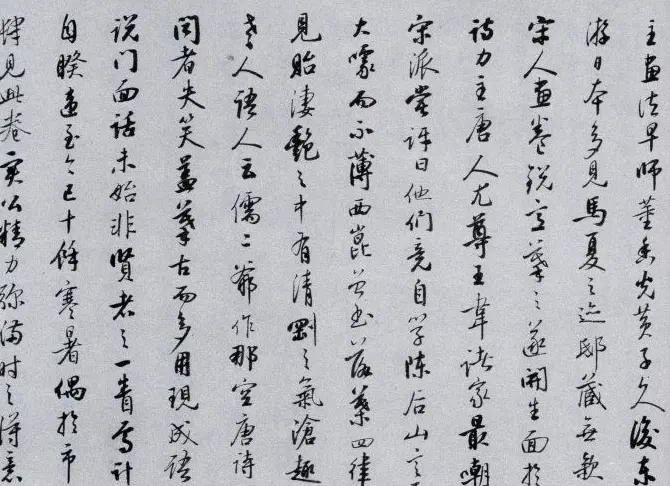 主画法早师董香光黄子久后东
游日本多见马夏之迹邸藏无款
宋人画卷锐意摹之遂开生面于
诗力主唐人尤尊王韦诸家最嘲
宋派尝讶曰他们竟自学陈后山言
大噱而不薄西昆曾书落叶四律
见贻凄艳之中有清刚之气沧趣
老人语人云儒二爷作那空唐诗
闻者失笑盖摹古而多用现成语
说门面话未始非贤者之一眚焉计
自暌违至今已十余寒暑偶于市
肆见此卷实公精力弥满时之得意